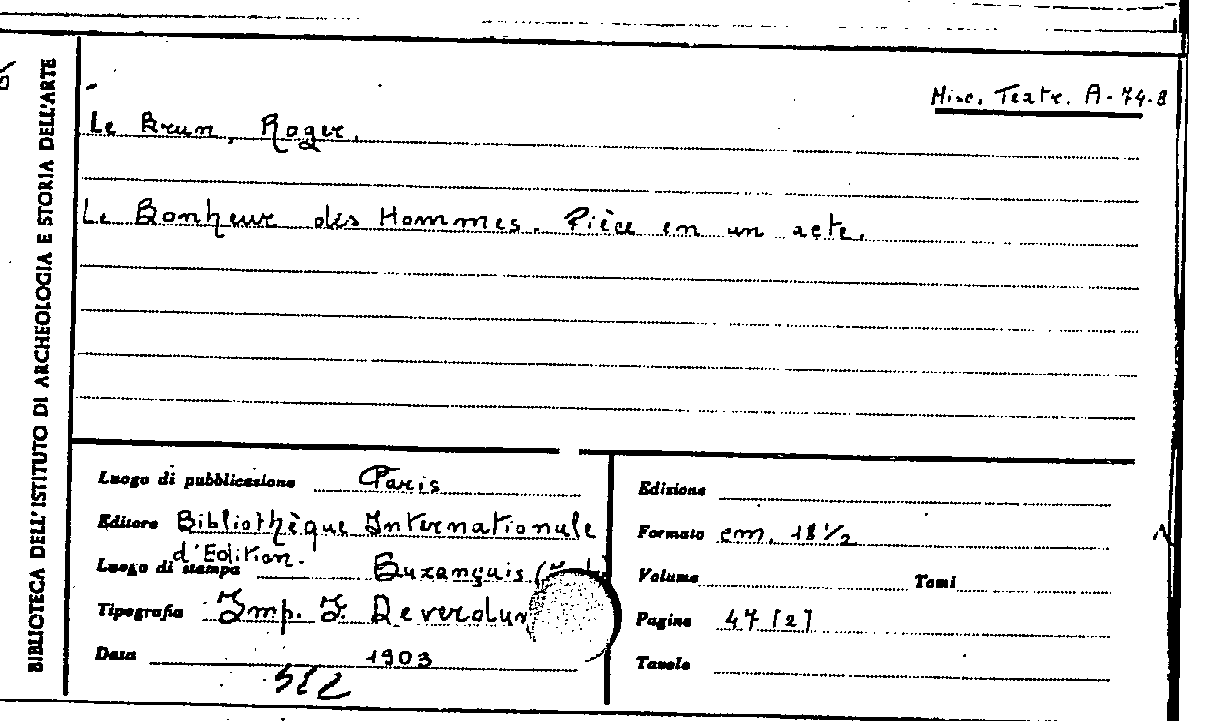 BIBLIOTECA DELL'ISTITUTO DI ARCHEOLOGIA E STORIA DELL'ARTE
Misc. Teatr. A-74-8
Le Brun, Roger.
Le Bonheur des Hommes. Pièce en un acte.
Luogo di pubblicazione Paris
Editore Bibliothèque Internationale
d'Edition.
Luogo di stampa Buzançais
Tipografia Imp. F. Deverdun
Data 1903
Edizione
Formato cm. 18 1/2
Volume Tomi
Pagine 47 [2]
Tavole